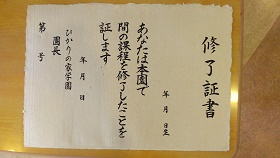 修了証書
年　月　日生
あなたは本園で
間の課程を修了したことを
証します
年　月　日
ひかりの家学園
園長
第　号